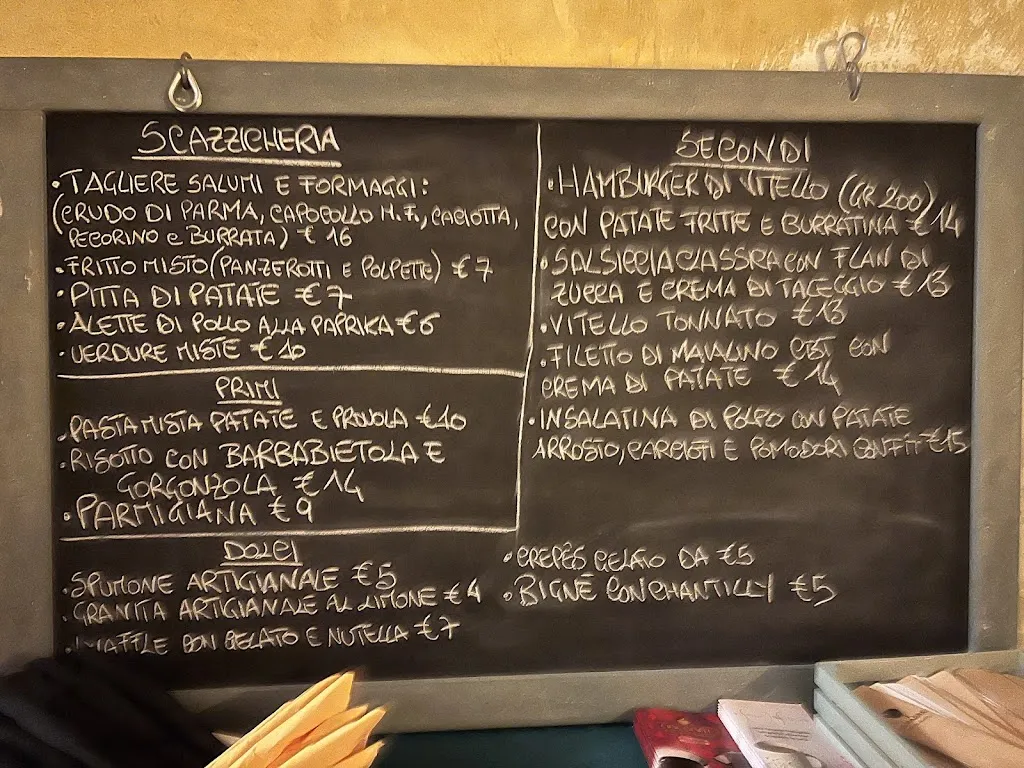 SCAZZICHERIA
• TAGLIERE SALUMI E FORMAGGI:
(CRUDO DI PARMA, CAPOCOLLO M.F., CACIOTTA,
PECORINO e BURRATA) € 16
• FRITTO MISTO (PANZEROTTI E POLPETTE) € 7
• PITTA DI PATATE € 7
• ALETTE DI POLLO ALLA PAPRIKA € 6
• VERDURE MISTE € 10
PRIMI
• PASTA MISTA PATATE E PROVOLA € 10
• RISOTTO CON BARBABIETOLA E
GORGONZOLA € 14
• PARMIGIANA € 9
DOLCI
• SPUMONE ARTIGIANALE € 5
• GRANITA ARTIGIANALE AL LIMONE € 4
• WAFFLE CON GELATO E NUTELLA € 7
SECONDI
• HAMBURGER DI VITELLO (GR 200)
CON PATATE FRITTE E BURRATINA € 14
• SALSICCIA CON FLAN DI
ZUCCA E CREMA DI TALEGGIO € 13
• VITELLO TONNATO € 13
• FILETTO DI MAIALINO CBT CON
CREMA DI PATATE € 14
• INSALATINA DI POLPO CON PATATE
ARROSTO, CARCIOFI E POMODORI CONFIT € 15
• CREPÈS GELATO DA € 5
• BIGNÈ CON CHANTILLY € 5